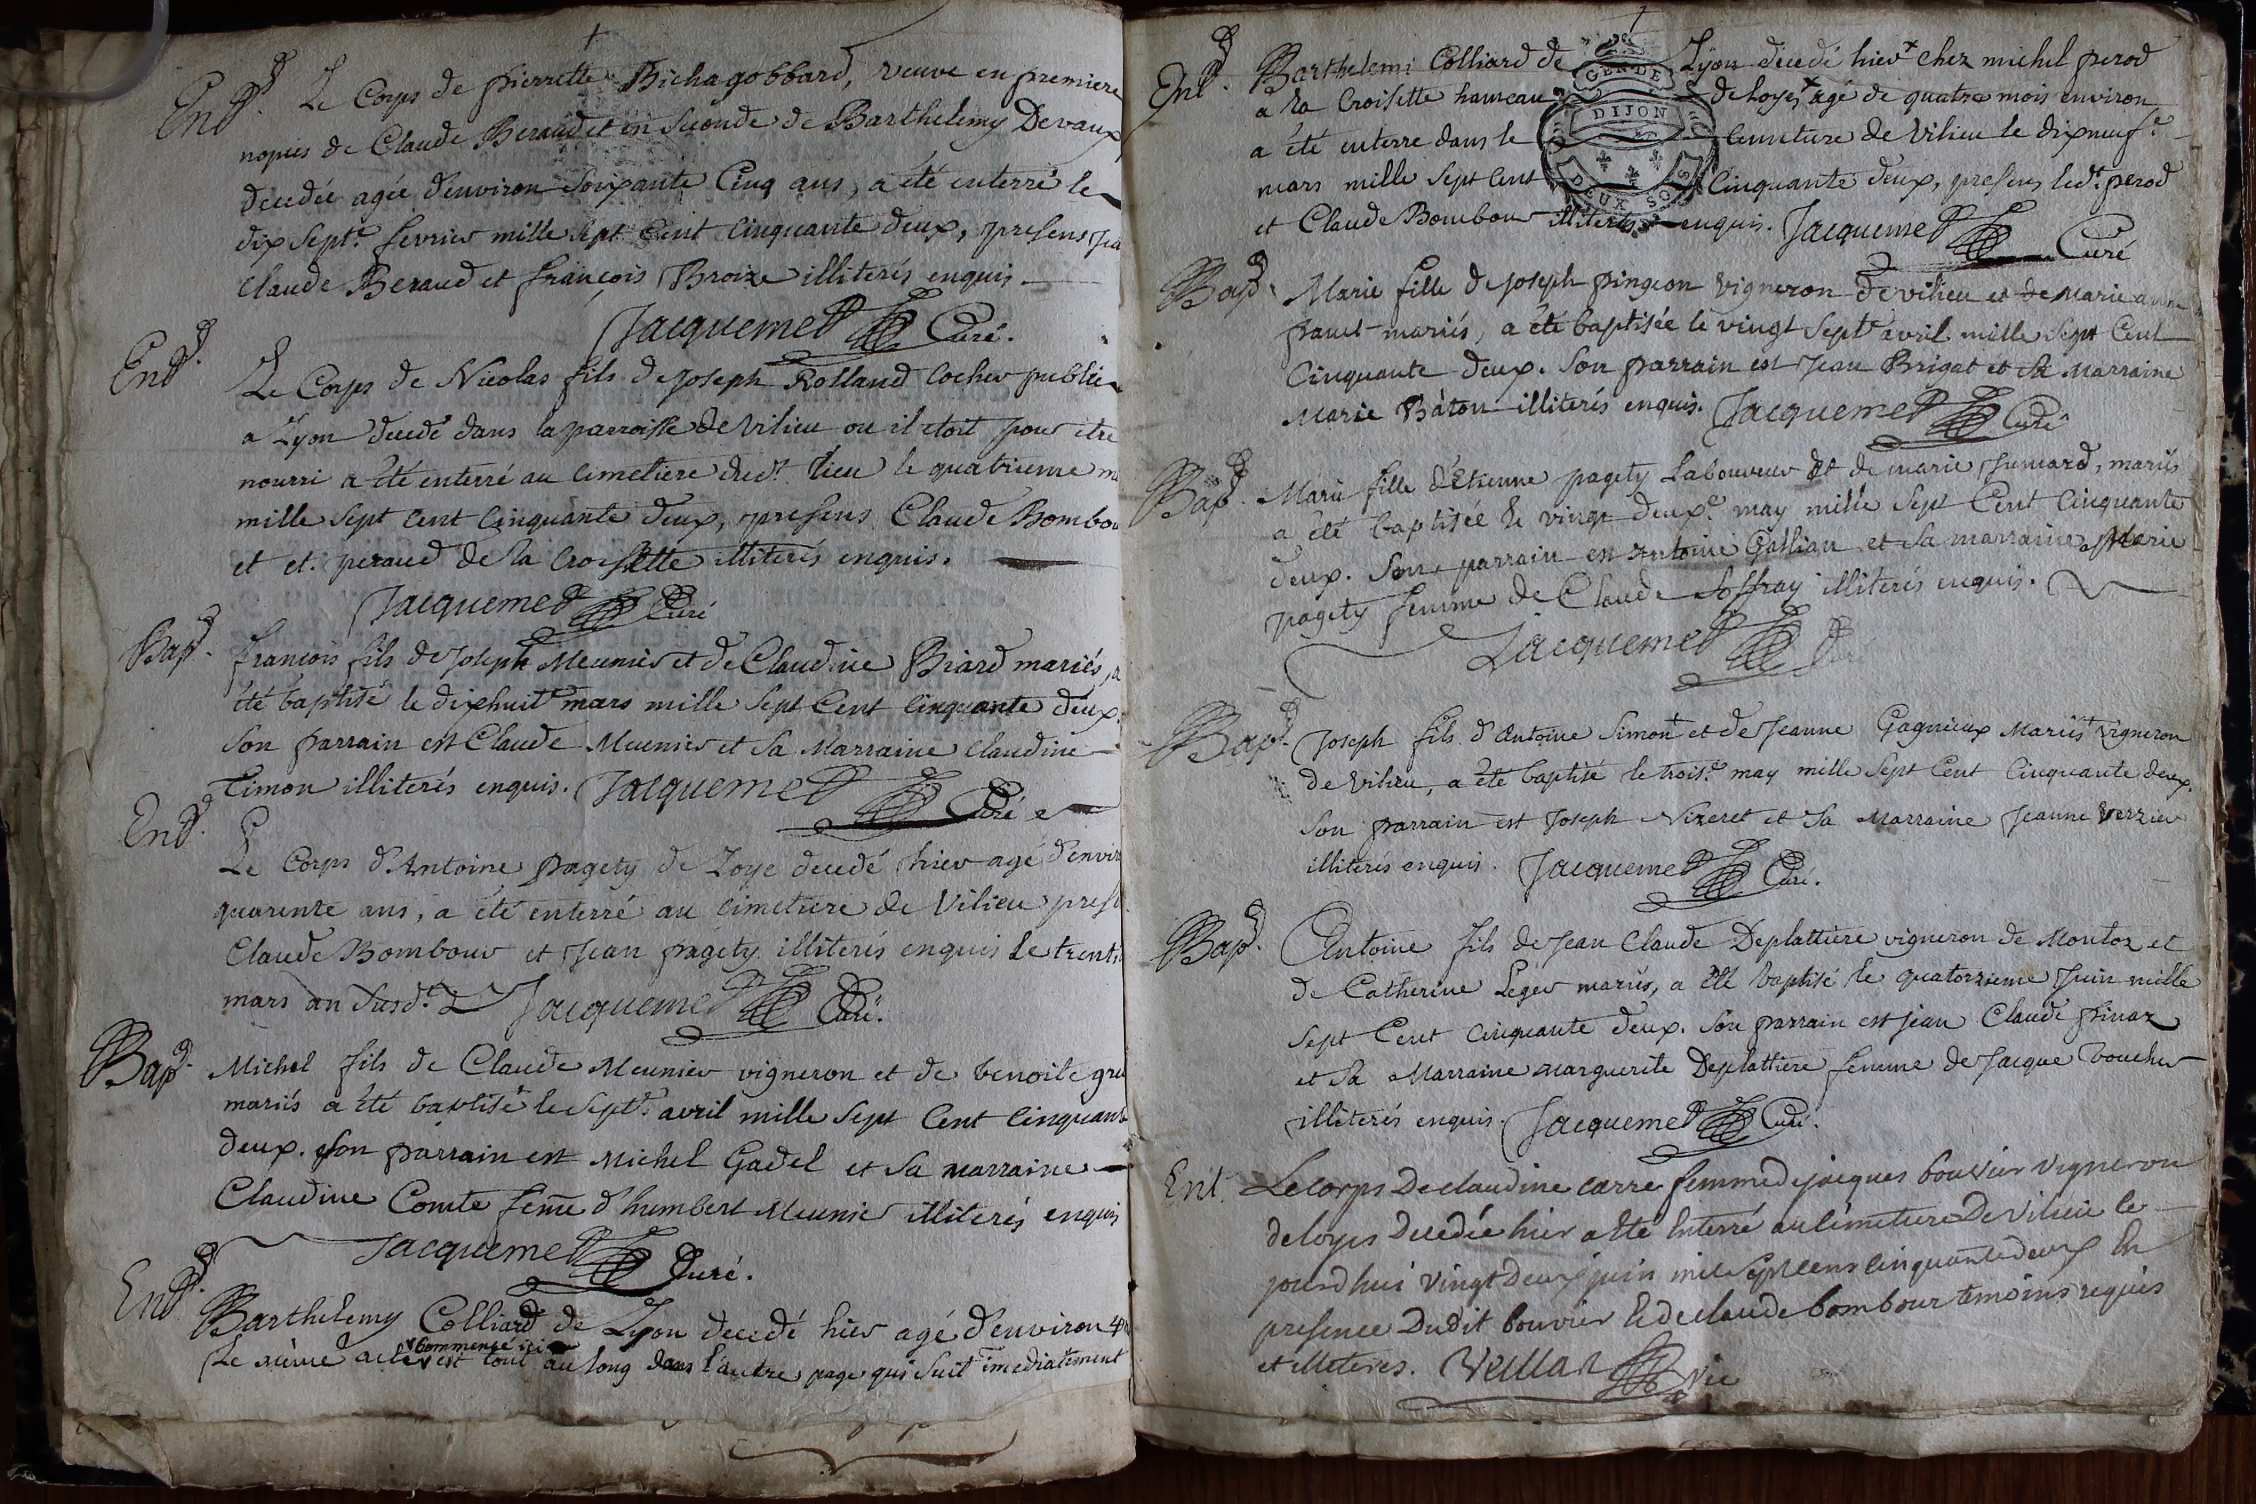 Entt. Le Corps de pierrette Bichagobbard, veuve en premiere
nopces de Claude Beraud et en seconde de Barthelemy Devaux
decedée agée d'environ soixante Cinq ans, a été enterré le
dix sept.e fevrier mille sept Cent Cinquante deux, presens
Claude Beraud et françois Broize illiterés enquis
Jacquemet Curé.
Entt. Le Corps de Nicolas fils de Joseph Rolland Cocher public
a Lyon decedé dans la parroisse de Vilieu ou il etoit pour etre
nourri a été enterré au Cimetiere dud.t lieu le quatrieme
mille sept Cent Cinquante deux, presens Claude Bombour
et et. peraud de la Croisette illiterés enquis.
Jacquemet Curé
Bapt. françois fils de Joseph Meunier et de Claudine Biard mariés, a
été baptisé le dixhuit.e mars mille sept Cent Cinquante deux.
Son parrain est Claude Meunier et sa Marraine Claudine
Timon illiterés enquis. Jacquemet Curé
Entt. Le Corps d'Antoine pagety de Loye decedé hier agé d'envir
quarente ans, a été enterré au Cimetiere de Vilieu
Claude Bombour et Jean pagety illiterés enquis le
mars an susd.t Jacquemet Curé.
Bapt. Michel fils de Claude Meunier vigneron et de benoite
mariés a été baptisé le sept.e avril mille sept Cent Cinquante
deux. Son parrain est Michel Gadel et sa marraine
Claudine Comte feme d'humbert Meunier illiterés enquis
Jacquemet Curé.
Entt. Barthelemy Colliard de Lyon decedé hier agé d'environ 4
commencé ici
Le même acte est tout au long dans l'autre page qui suit imediatement
Entt. Barthelemi Colliard de Lyon decedé hier chez michel perod
GEN DE
DIJON
DEUX SOLS
a la Croisette hameau de Loyes agé de quatre mois environ
a été enterré dans le Cimetiere de Vilieu le dixneuf.e
mars mille sept Cent Cinquante deux, presens led.t perod
et Claude Bombour illiterés enquis. Jacquemet Curé
Bapt. Marie fille de Joseph pingeon Vigneron de vilieu et de Marie
mariés, a été baptisée le vingt sept.e avril mille sept Cent
Cinquante deux. Son parrain est Jean Brigat et sa Marraine
Marie Bâton illiterés enquis. Jacquemet Curé
Bapt. Marie fille d'Etienne pagety Laboureur et de marie Jumard, mariés
a été baptisée le vingt deux.e may mille sept Cent Cinquante
deux. Son parrain est Antoine Gallian et sa marraine Marie
pagety femme de Claude Joffray illiterés enquis.
Jacquemet Curé
Bapt. Joseph fils d'Antoine Simon et de Jeanne Gagnieux Mariés Vigneron
de Vilieu, a été baptisé le trois.e may mille sept Cent Cinquante deux.
Son parrain est Joseph Nizeret et sa Marraine Jeanne Verzier
illiterés enquis. Jacquemet Curé.
Bapt. Antoine fils de Jean Claude Deplattiere vigneron de Monloz et
de Catherine Leger mariés, a été baptisé le quatorzieme Juin mille
sept Cent Cinquante deux. Son parrain est Jean Claude pinaz
et sa Marraine Marguerite Deplattiere femme de Jacque voucher
illiterés enquis. Jacquemet Curé.
Ent. Le corps De claudine carre femme de jacques bouvier vigneron
de loyes decedée hier a été Enterré au Cimetiere De Vilieu le
jourdhui vingt Deux juin mil sept cens cinquante deux En
presence Dudit bouvier & de claude bombour temoins requis
et illiteres. Veullan vic